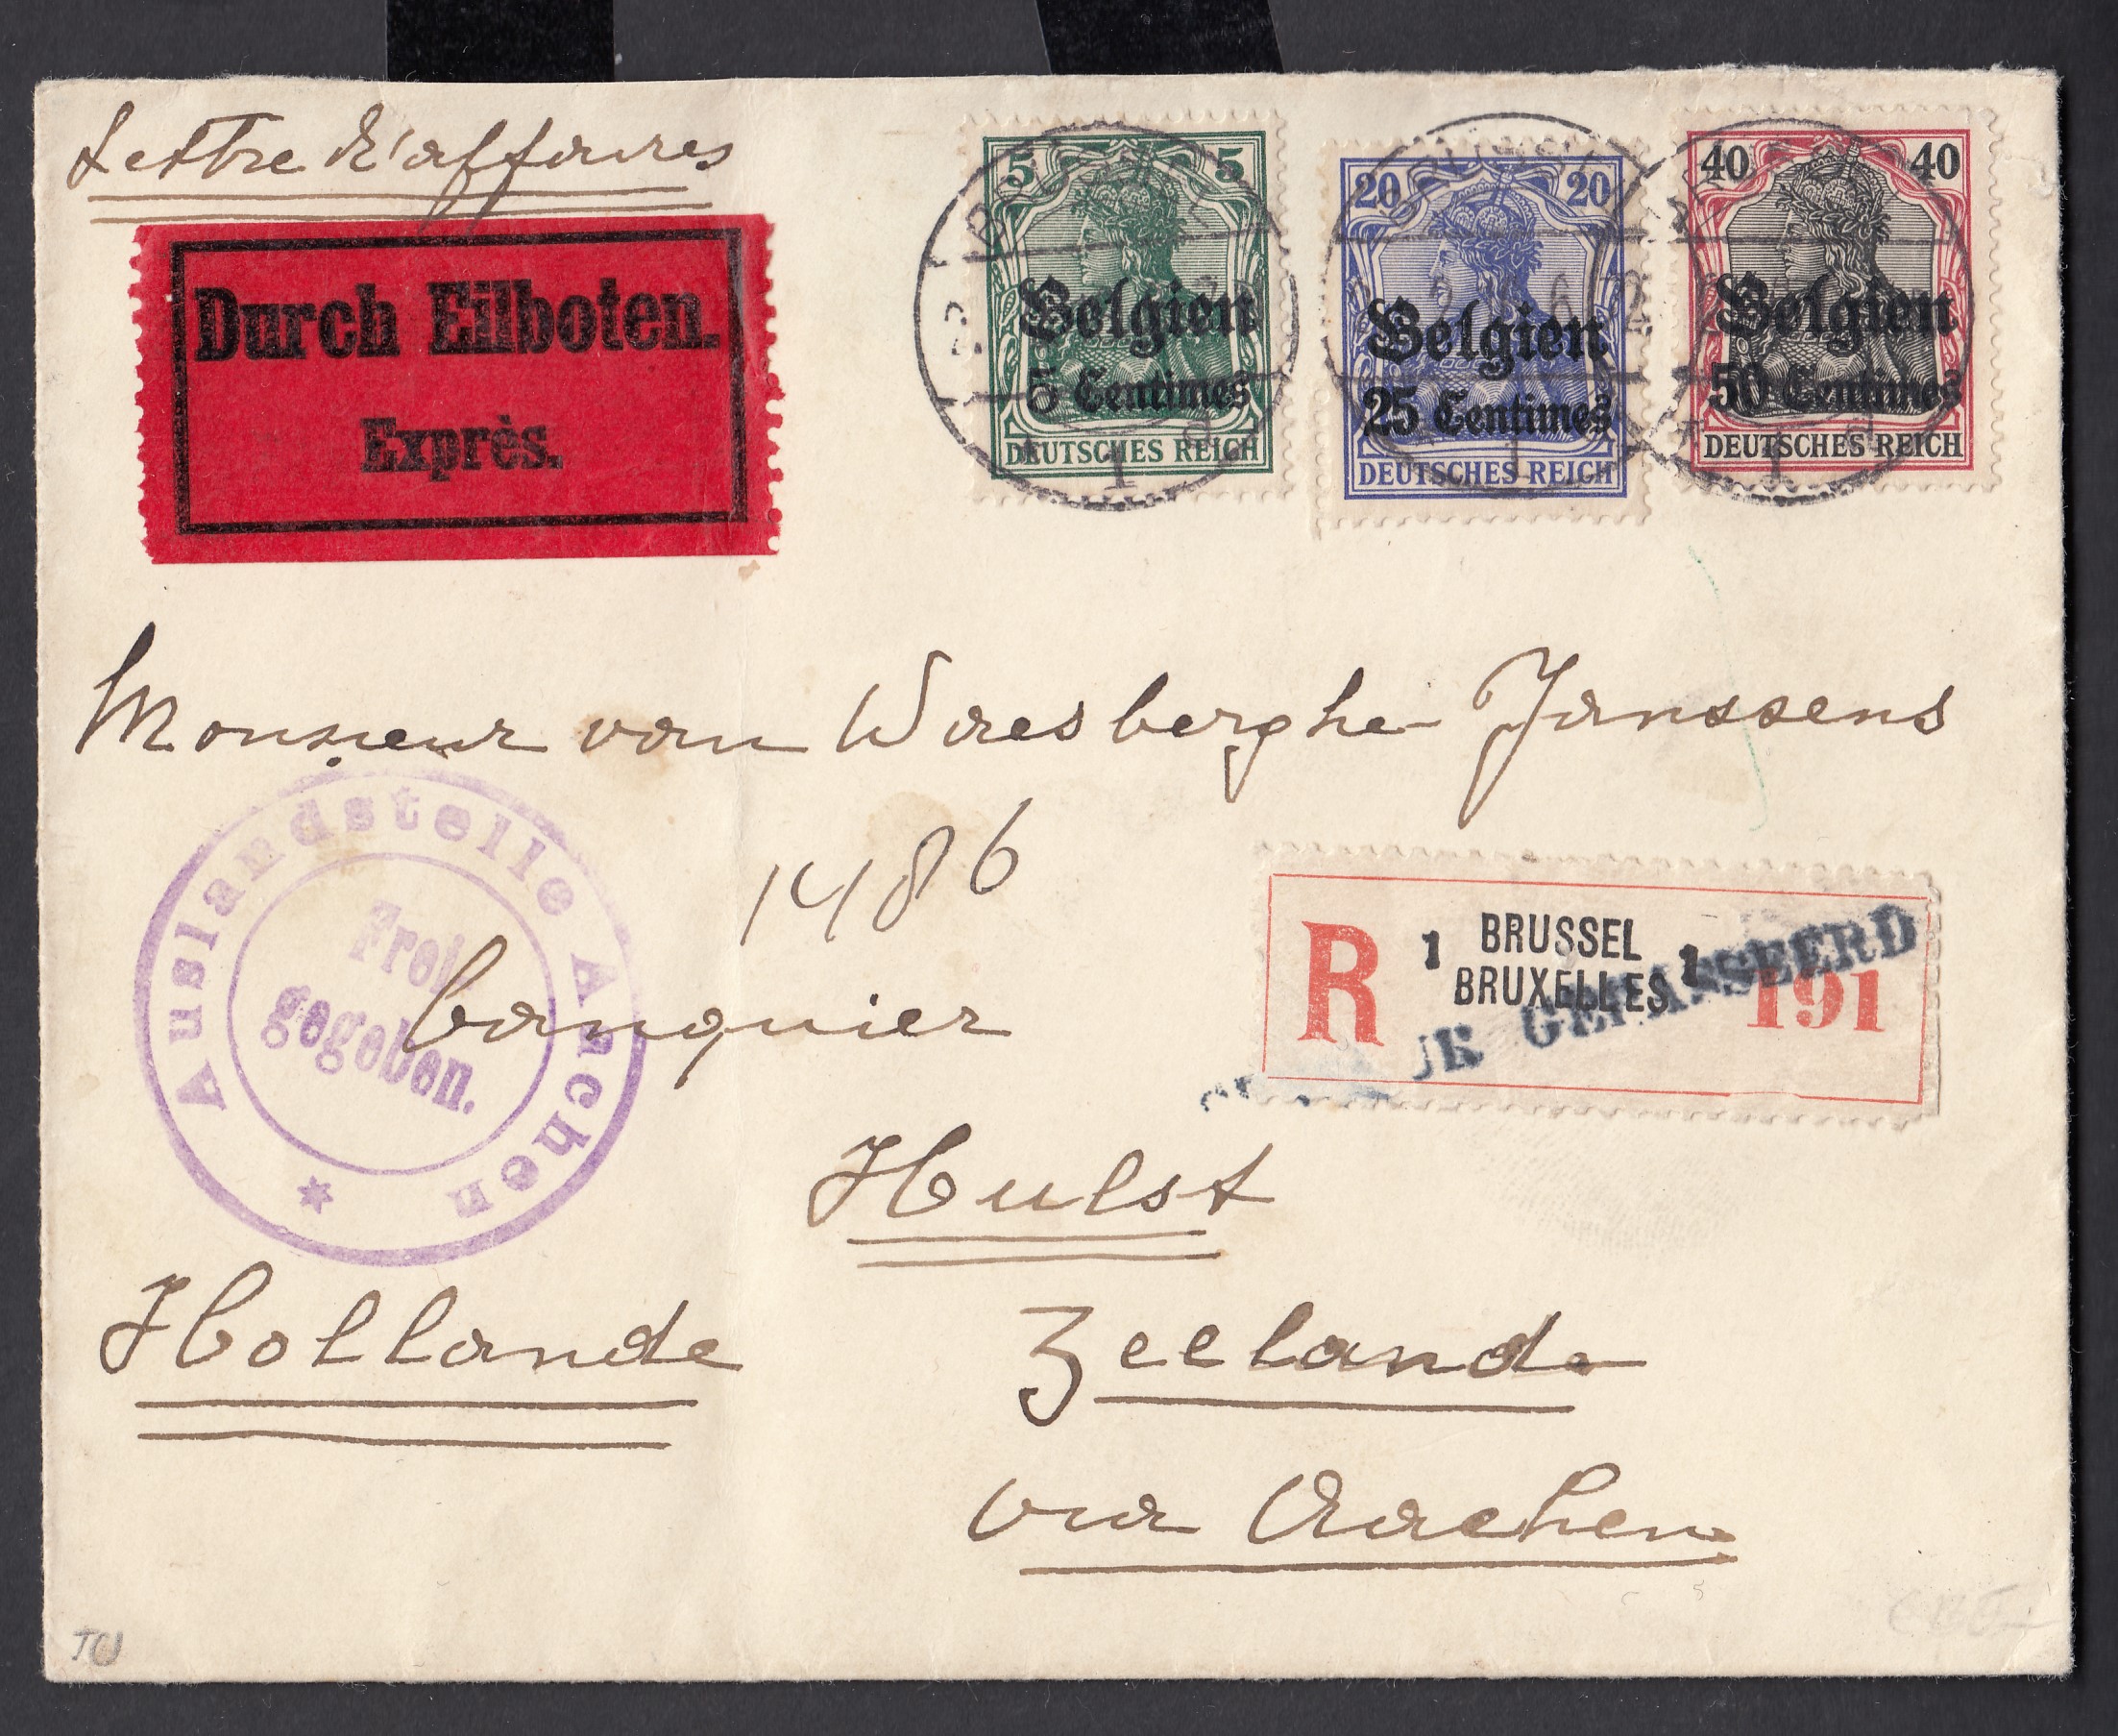 Lettre d'affaires
Durch Eilboten.
Exprès.
5 5
Belgien
5 Centimes
DEUTSCHES REICH
20 20
Belgien
25 Centimes
DEUTSCHES REICH
40 40
Belgien
50 Centimes
DEUTSCHES REICH
Monsieur van Waesberghe Janssens
1486
Auslandstelle Aachen
Frei
gegeben.
banquier
R 1 BRUSSEL
BRUXELLES 1 191
Hulst
Hollande
Zeelande
via Aachen